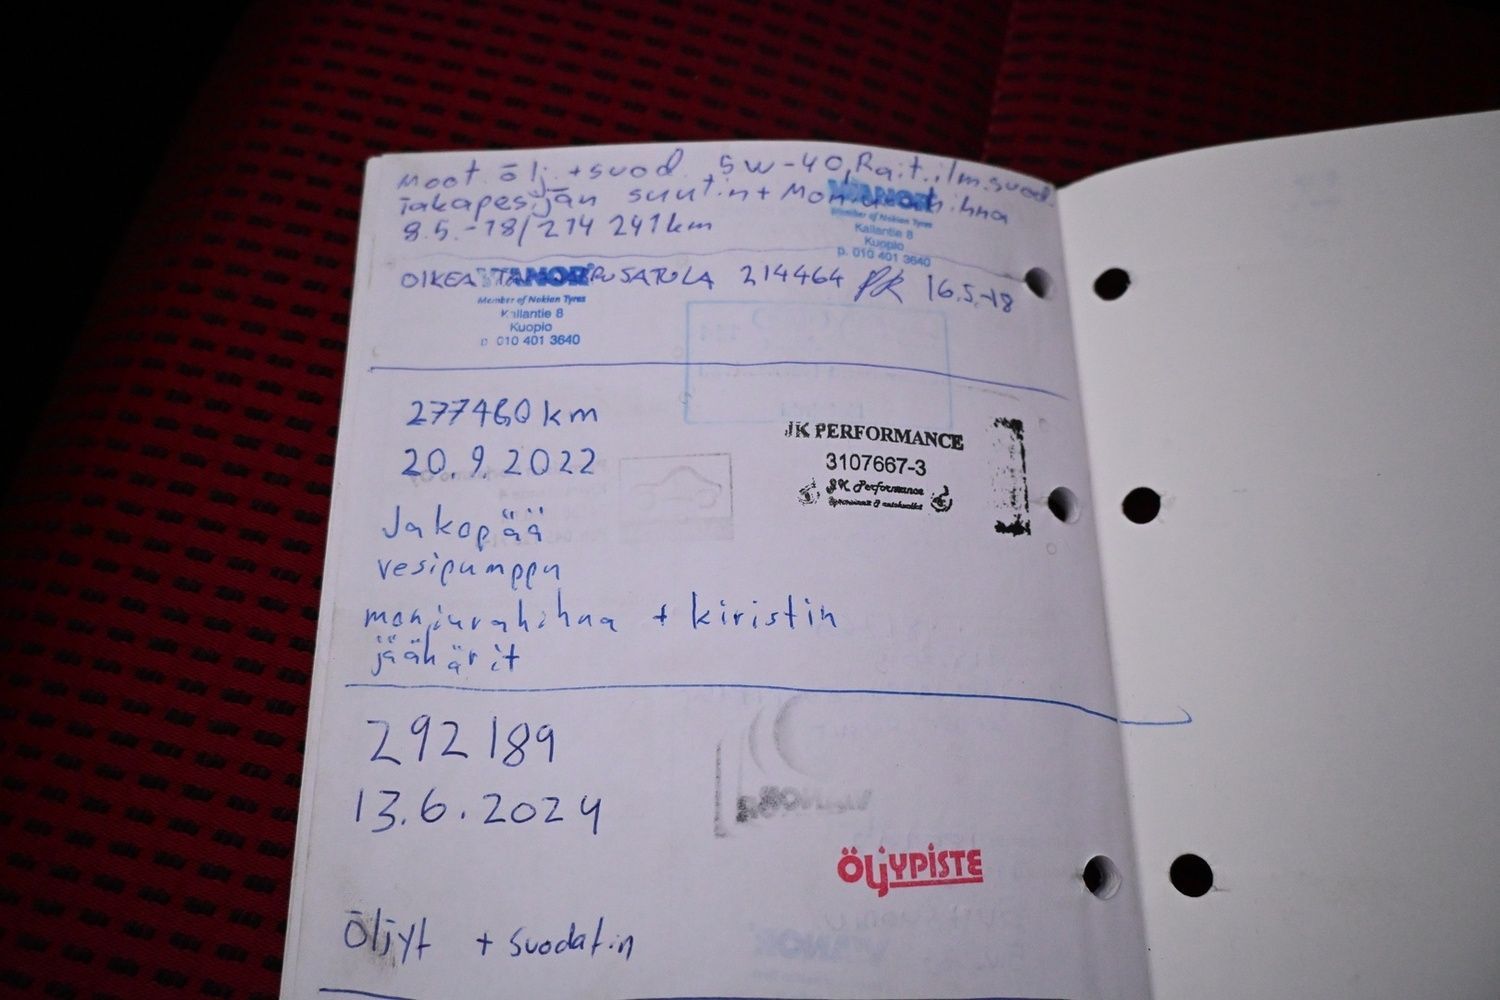 Moot. ölj. + suod. 5W-40, Rait.ilm.suod.
Takapesijän suutin + Moniurahihna
VIANOR
Member of Nokian Tyres
Kallantie 8
Kuopio
p. 010 401 3640
8.5.-18/214 241km
OIKEA 214464 16.5.-18
VIANOR
Member of Nokian Tyres
Kallantie 8
Kuopio
p. 010 401 3640
277460 km
20.9.2022
JK PERFORMANCE
3107667-3
JK Performance
Jakopää
vesipumppu
moniurahihna + kiristin
jäähärit
292 189
13.6.2024
VIANOR
ÖLJYPISTE
Öljyt + suodatin
VIANOR